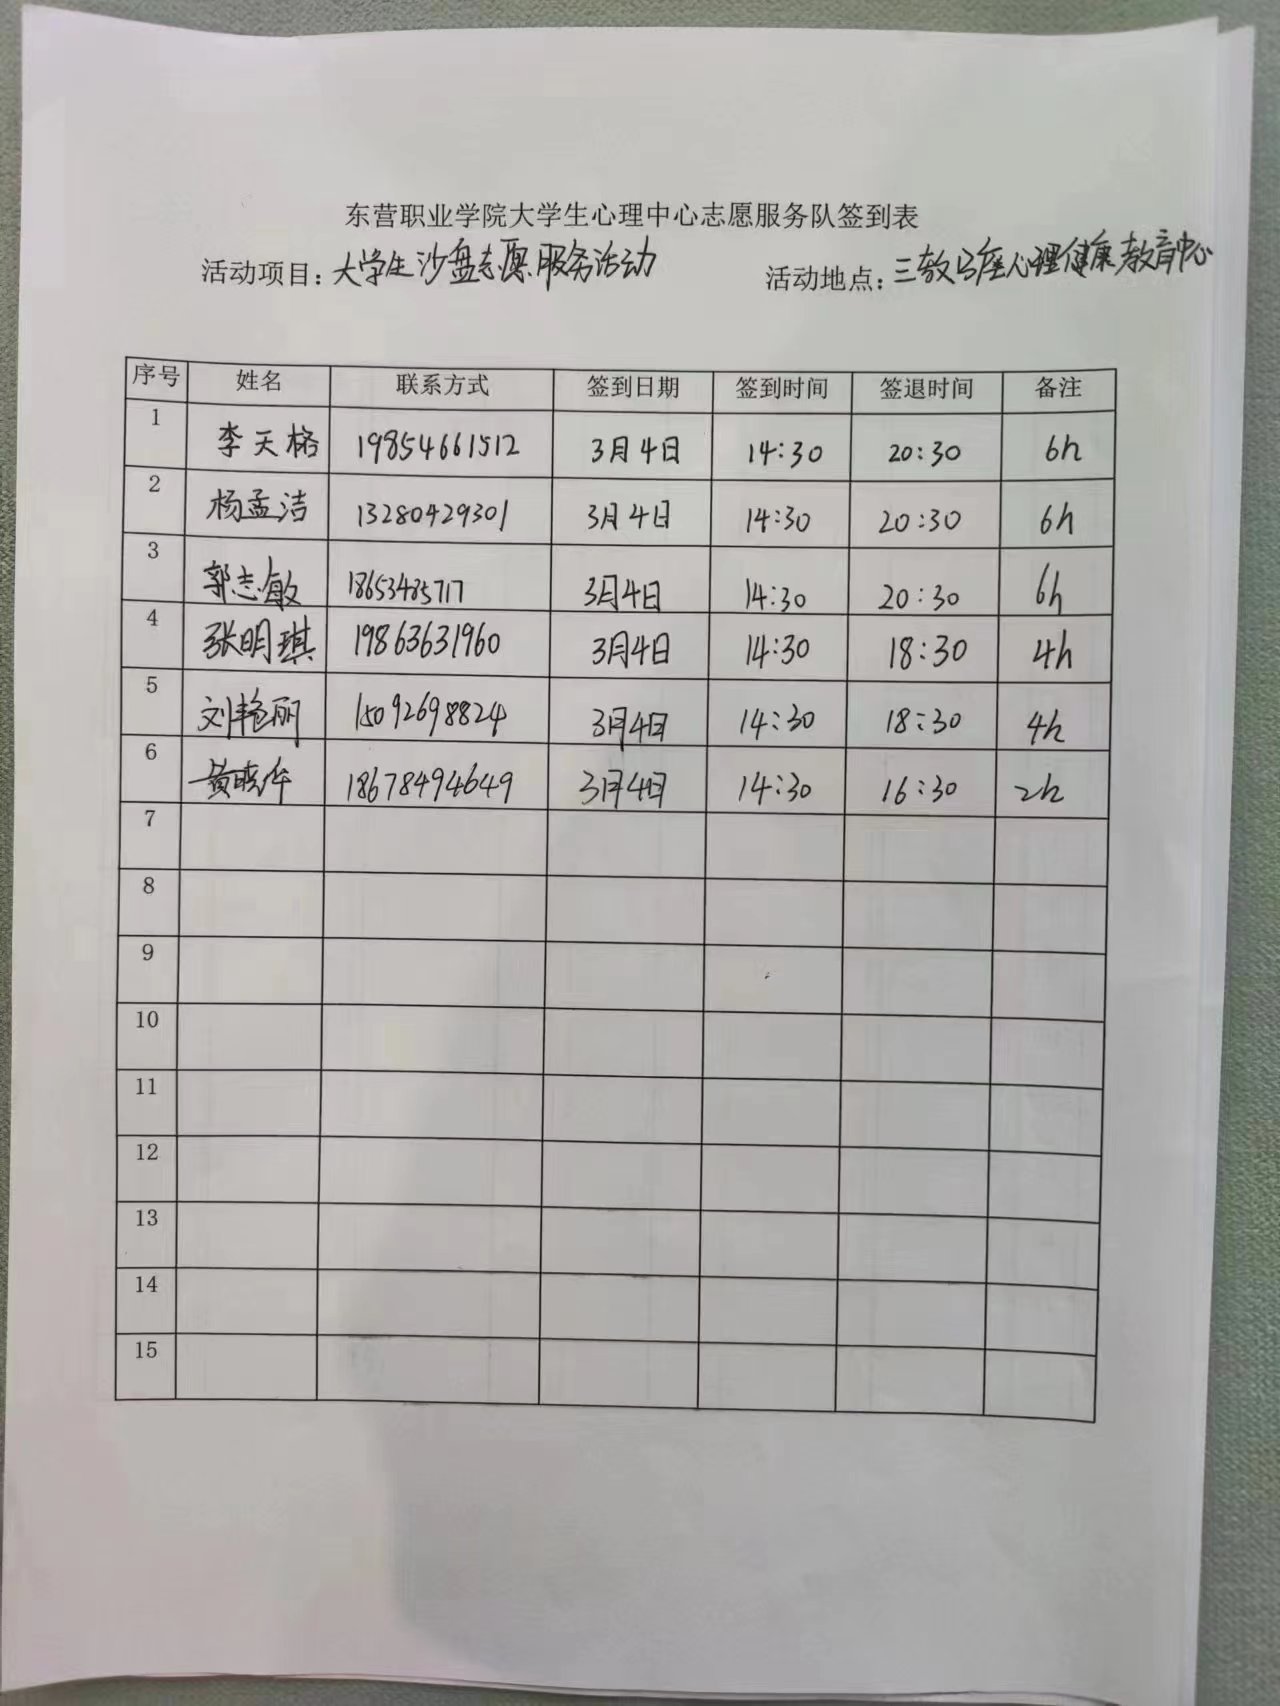 东营职业学院大学生心理中心志愿服务队签到表
活动项目：大学生沙盘志愿服务活动 活动地点：三教马座心理健康教育中心
序号 姓名 联系方式 签到日期 签到时间 签退时间 备注
1 李天格 19854661512 3月4日 14:30 20:30 6h
2 杨孟洁 13280429301 3月4日 14:30 20:30 6h
3 郭志敏 18653485717 3月4日 14:30 20:30 6h
4 张明琪 19863631960 3月4日 14:30 18:30 4h
5 刘艳丽 15092698824 3月4日 14:30 18:30 4h
6 黄晓华 18678494649 3月4日 14:30 16:30 2h
7
8
9
10
11
12
13
14
15